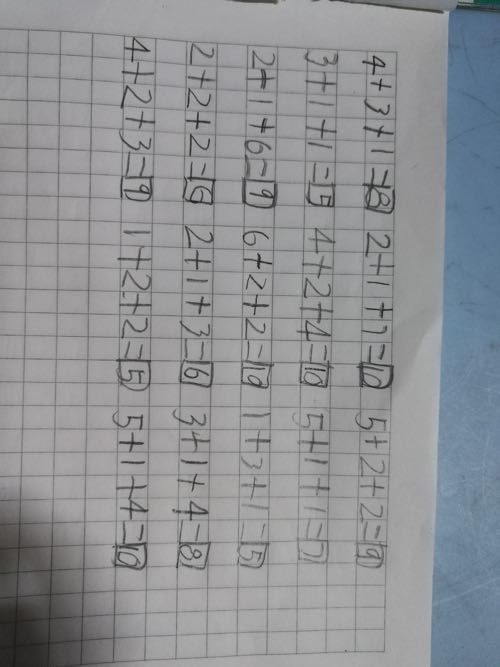 4+3+1=8 2+1+7=10 5+2+2=9
3+1+1=5 4+2+4=10 5+1+1=7
2+1+6=9 6+2+2=10 1+3+1=5
2+2+2=6 2+1+3=6 3+1+4=8
4+2+3=9 1+2+2=5 5+1+4=10